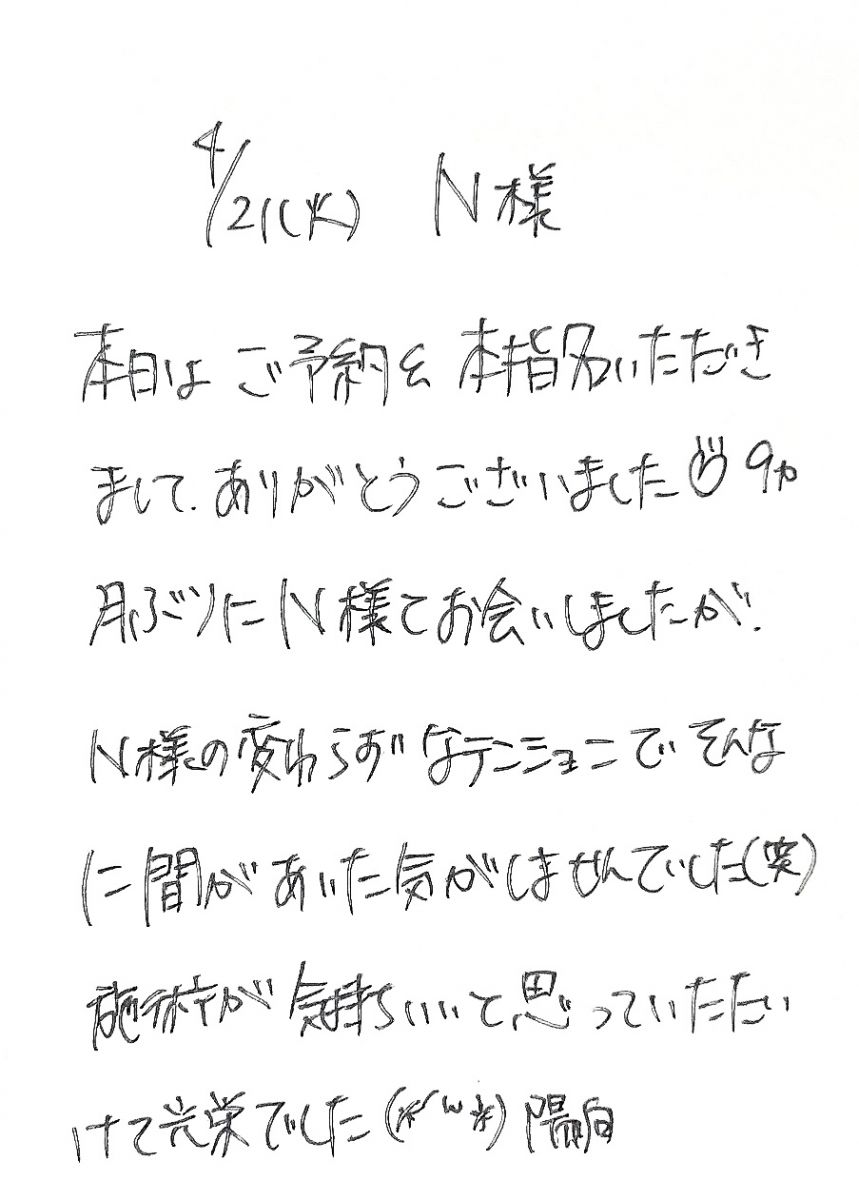 4/21(火) N様
本日はご予約を本指名いただき
まして、ありがとうございました 9カ
月ぶりにN様とお会いしましたが、
N様の変わらずなテンションで、そんな
に間があいた気がしませんでした(笑)
施術が気持ちいいと思っていただい
けて光栄でした(*´ω`*) 陽向